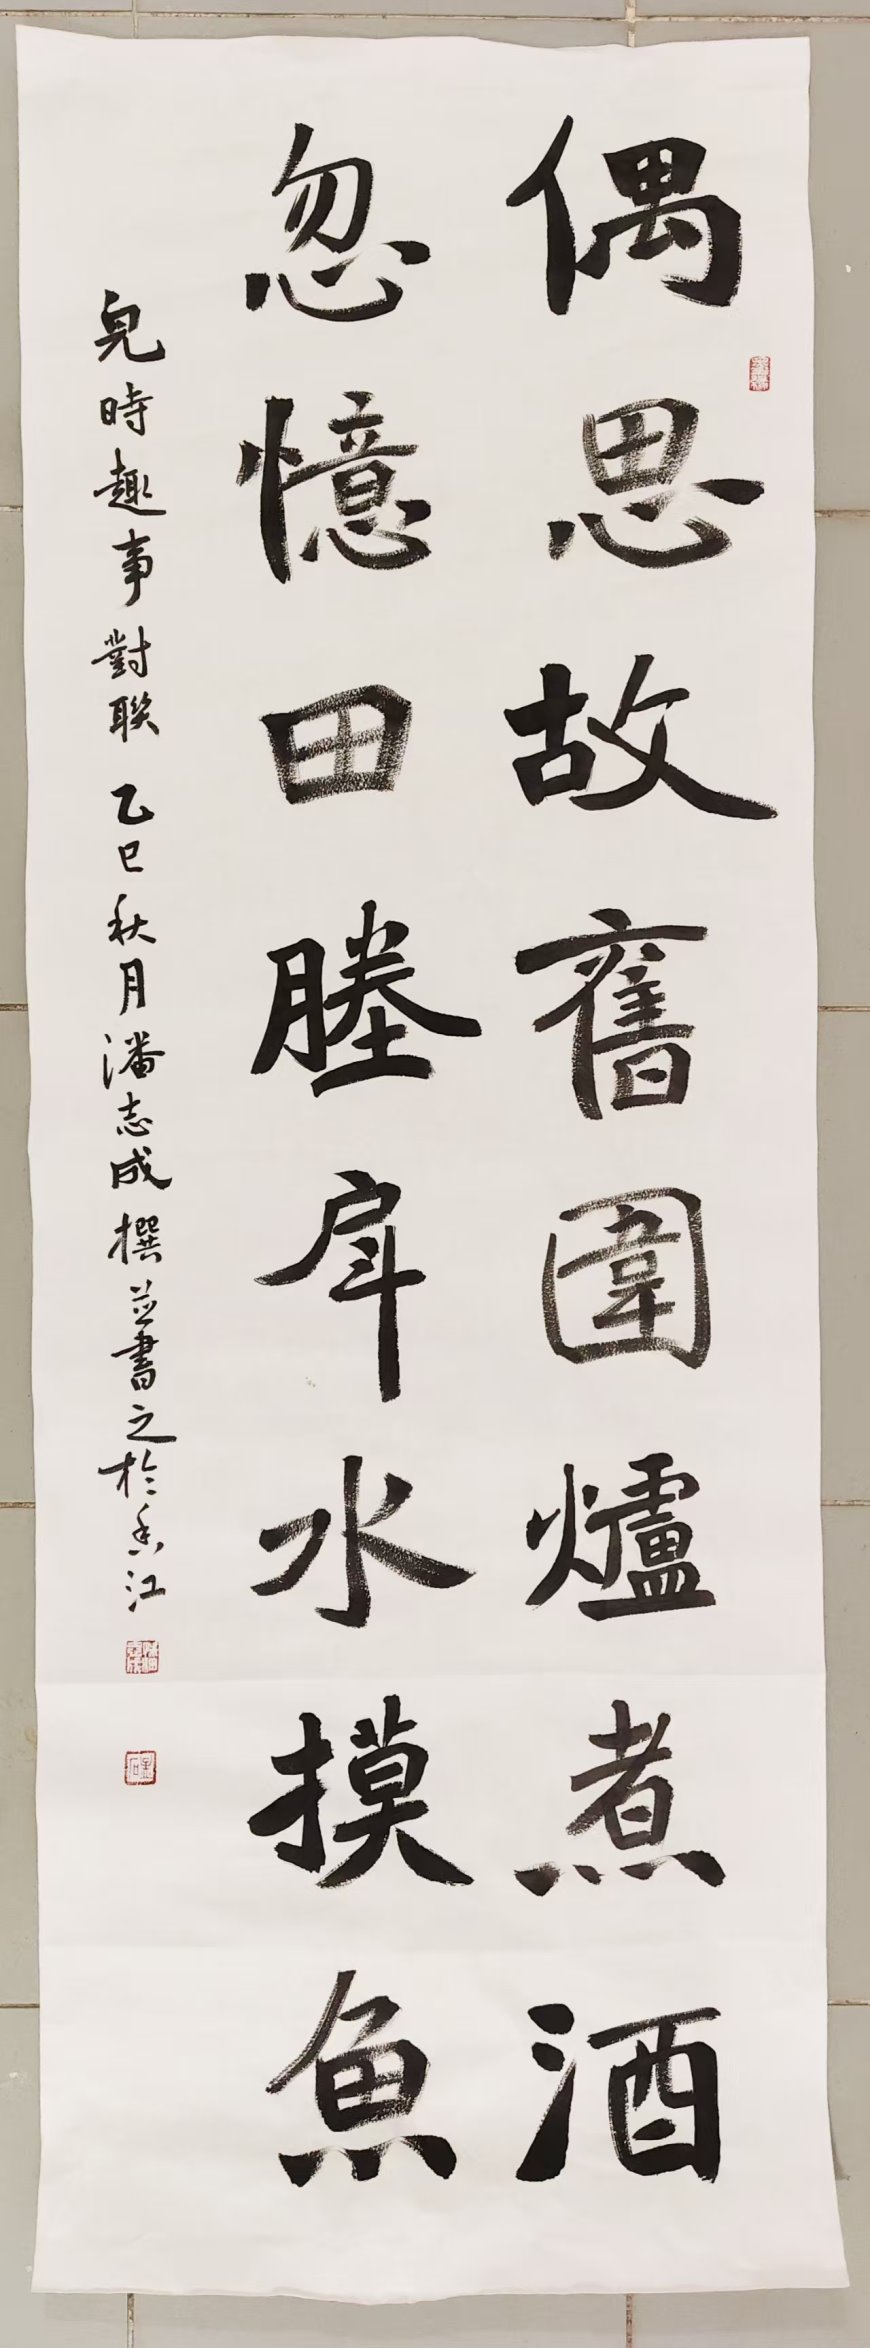 偶思故舊圍爐煮酒
忽憶田塍戽水摸魚
兒時趣事對聯 乙巳秋月潘志成撰並書之於香江